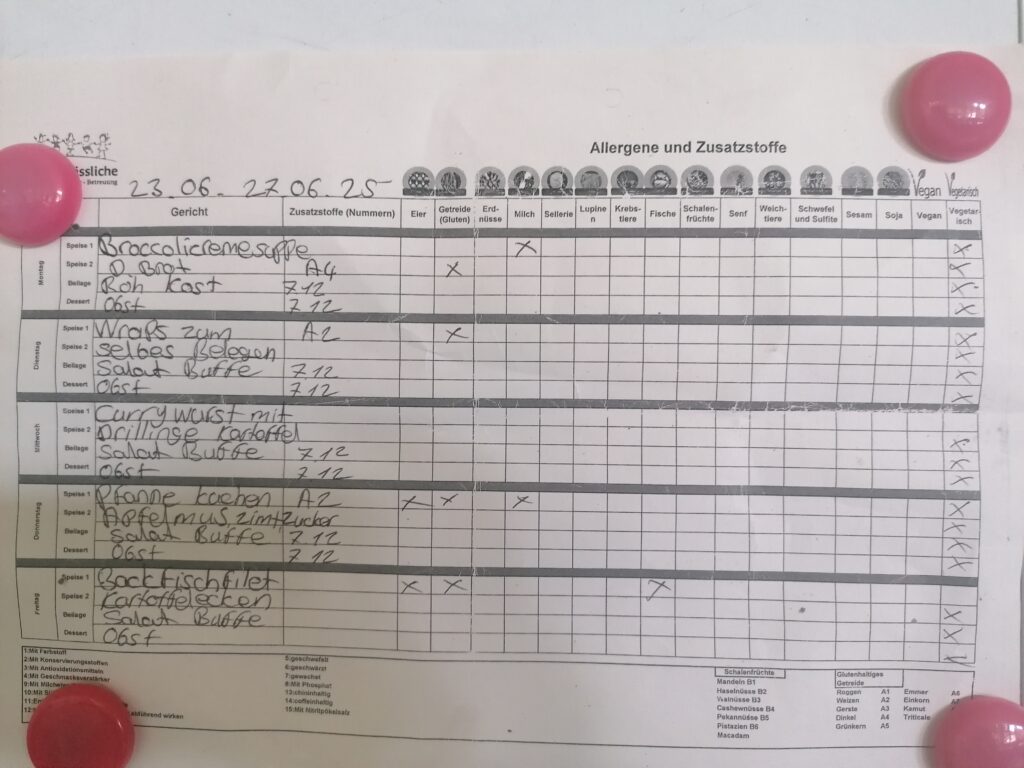 Allergene und Zusatzstoffe
Betreuung
23.06. - 27.06.25
Vegan Vegetarisch
Gericht Zusatzstoffe (Nummern) Eier Getreide (Gluten) Erd-nüsse Milch Sellerie Lupinen Krebs-tiere Fische Schalen-früchte Senf Weich-tiere Schwefel und Sulfite Sesam Soja Vegan Vegetar-isch
Montag
Speise 1 Broccolicremesuppe X X
Speise 2 D. Brot A4 X X
Beilage Roh kost 7 12 X
Dessert Obst 7 12 X
Dienstag
Speise 1 Wraps zum A2 X X
Speise 2 selbes Belegen X
Beilage Salat Buffe 7 12 X
Dessert Obst 7 12 X
Mittwoch
Speise 1 Curry wurst mit
Speise 2 Drillinge Kartoffel
Beilage Salat Buffe 7 12 X
Dessert Obst 7 12 X
Donnerstag
Speise 1 Pfanne kuchen A2 X X X X
Speise 2 Apfelmus zimt+zucker X
Beilage Salat Buffe 7 12 X
Dessert Obst 7 12 X
Freitag
Speise 1 Backfischfilet X X X
Speise 2 Kartoffelecken
Beilage Salat Buffe X
Dessert Obst X
1:Mit Farbstoff
2:Mit Konservierungsstoffen
3:Mit Antioxidationsmitteln
4:Mit Geschmacksverstärker
abführend wirken
5:geschwefelt
6:geschwärzt
7:gewachst
8:Mit Phosphat
13:chininhaltig
14:coffeinhaltig
15:Mit Nitritpökelsalz
Schalenfrüchte
Mandeln B1
Haselnüsse B2
Walnüsse B3
Cashewnüsse B4
Pekannüsse B5
Pistazien B6
Macadam
Glutenhaltiges
Getreide
Roggen A1 Emmer A6
Weizen A2 Einkorn
Gerste A3 Kamut
Dinkel A4 Triticale
Grünkern A5